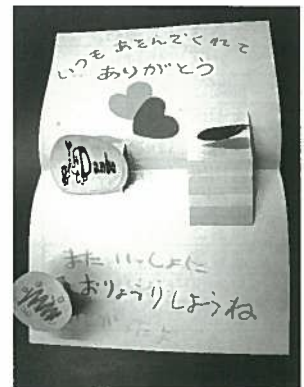 いつもあそんでくれて
ありがとう
またいっしょに
おりょうりしようね